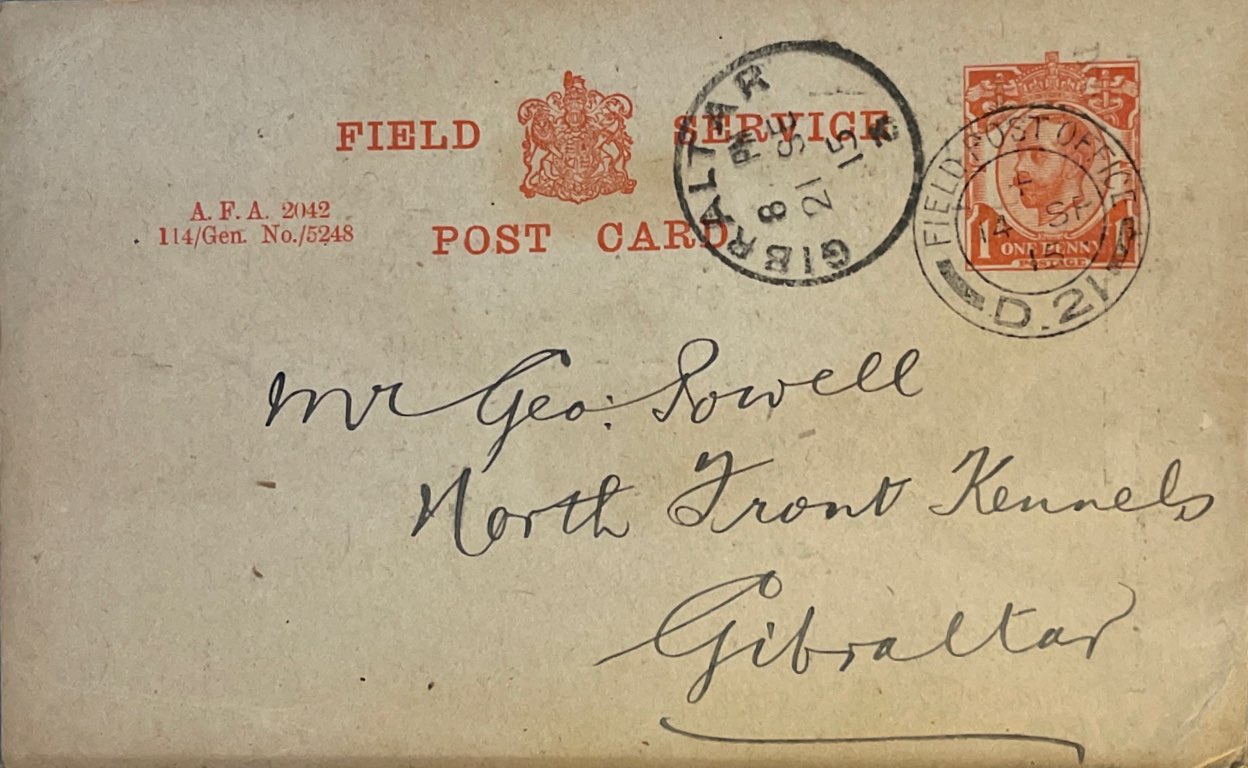 FIELD SERVICE
POST CARD
A. F. A. 2042
114/Gen. No./5248
GIBRALTAR
8 PM
21 SE
15
FIELD POST OFFICE
14 SE
15
D.21
ONE PENNY
POSTAGE
1 1
Mr Geo: Sowell
North Front Kennels
Gibraltar